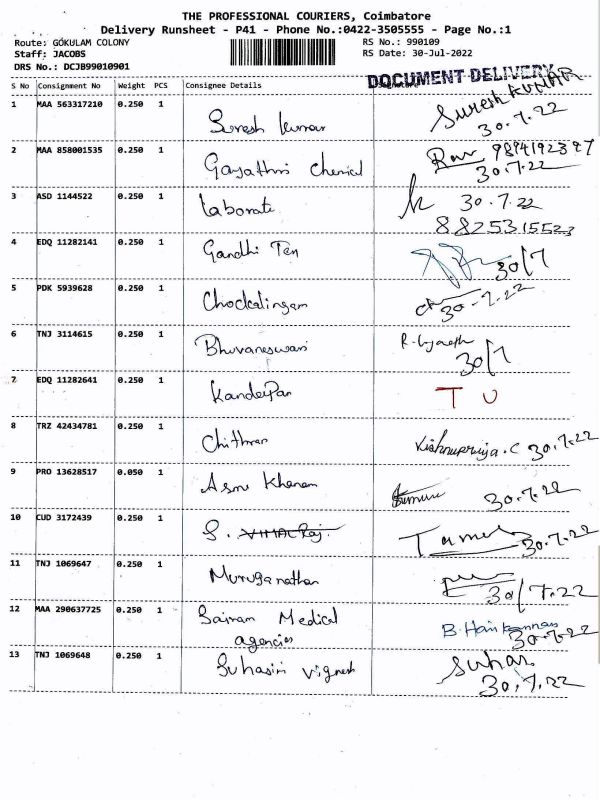 THE PROFESSIONAL COURIERS, Coimbatore
Delivery Runsheet - P41 - Phone No.:0422-3505555 - Page No.:1
Route: GOKULAM COLONY RS No.: 990109
Staff: JACOBS RS Date: 30-Jul-2022
DRS No.: DCJB99010901 DOCUMENT DELIVERY
S No Consignment No Weight PCS Consignee Details
1 MAA 563317210 0.250 1 Suresh kumar Suresh KUMAR
30.7.22
2 MAA 858001535 0.250 1 Gayathri Chemical 9894192397
30.7.22
3 ASD 1144522 0.250 1 Laborate 30.7.22
8825315523
4 EDQ 11282141 0.250 1 Gandhi Ten 30/7
5 PDK 5939628 0.250 1 Chockalingam 30-7-22
6 TNJ 3114615 0.250 1 Bhuvaneswari
30/7
7 EDQ 11282641 0.250 1 T U
8 TRZ 42434781 0.250 1 Vishnupriya.C 30.7.22
9 PRO 13628517 0.050 1 Asma Khanam 30.7.22
10 CUD 3172439 0.250 1 S. VIMAL Raj. 30.7.22
11 TNJ 1069647 0.250 1 Muruganathan
30/7.22
12 MAA 290637725 0.250 1 Sairam Medical B. Hari Kannan
agencies 30.7.22
13 TNJ 1069648 0.250 1 Suhasini vignesh Suhas
30.7.22